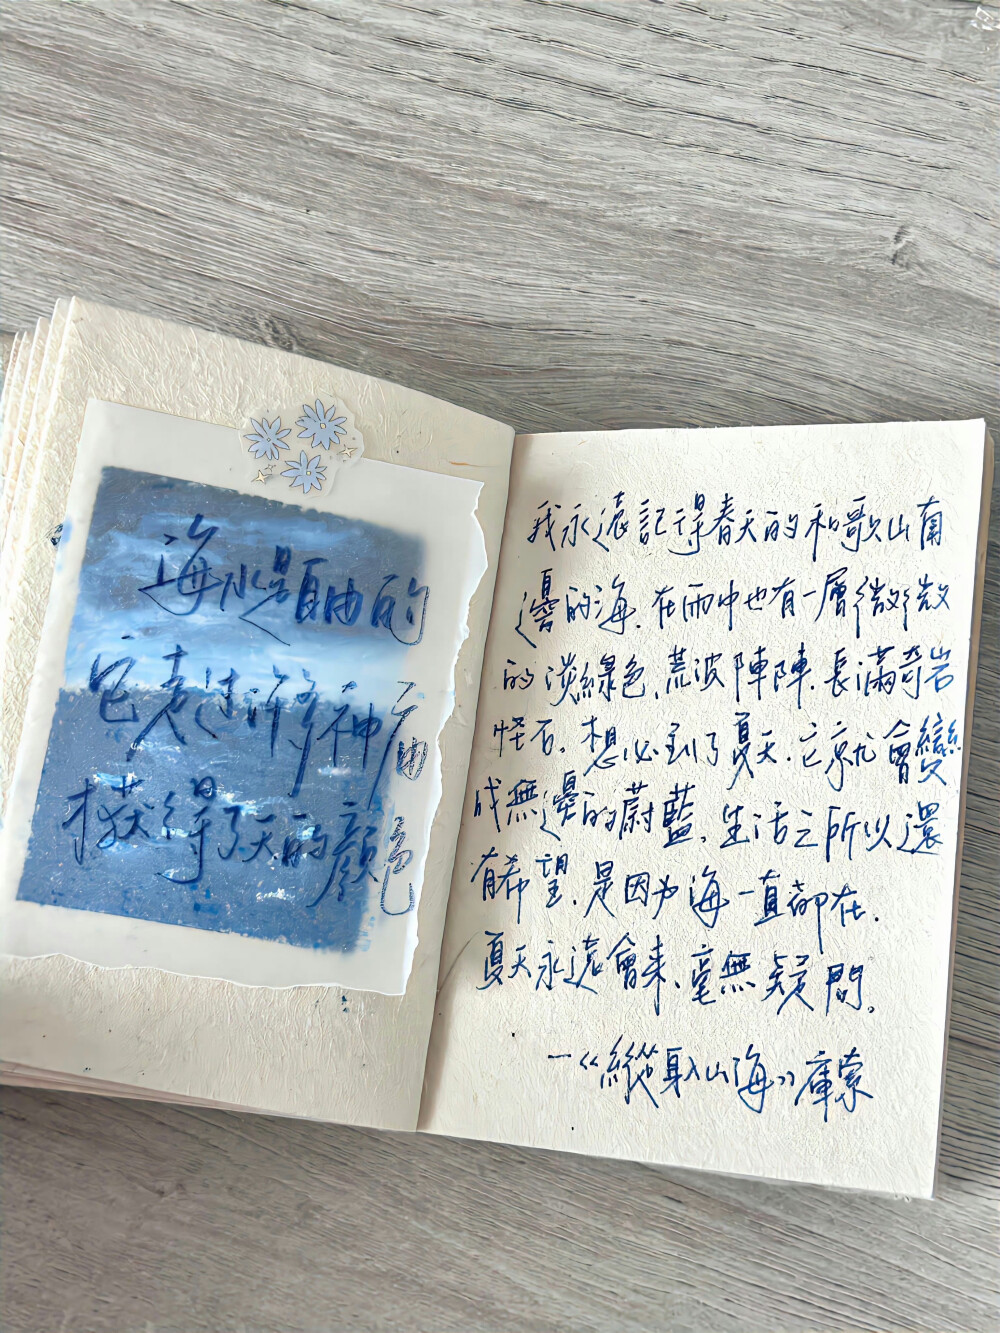 海水是自由的
它走过许多神庙
获得了天的顏色
我永遠記得春天的和歌山南
邊的海，在雨中也有一層微微
的淡綠色，荒波陣陣，長滿奇岩
怪石，想必到了夏天，它就會變
成無邊的蔚藍，生活之所以還
有希望，是因为海一直都在，
夏天永遠會來，毫無疑問。
—《縱身入山海》庫索